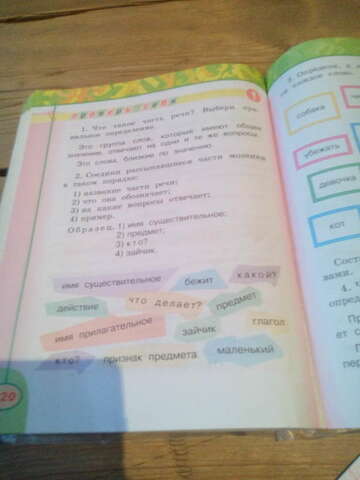 проверь себя
1
1. Что такое часть речи? Выбери пра-
вильное определение.
Это группа слов, которые имеют общее
значение, отвечают на один и те же вопросы.
Это слова, близкие по значению.
2. Соедини рассыпавшиеся части мозаики
в таком порядке:
1) название части речи;
2) что она обозначает;
3) на какие вопросы отвечает;
4) пример.
Образец. 1) имя существительное;
2) предмет;
3) кто?
4) зайчик.
имя существительное бежит какой?
действие что делает? предмет
имя прилагательное зайчик глагол
кто? признак предмета маленький
20
собака
убежать
девочка
кот
Сост
4.
опре